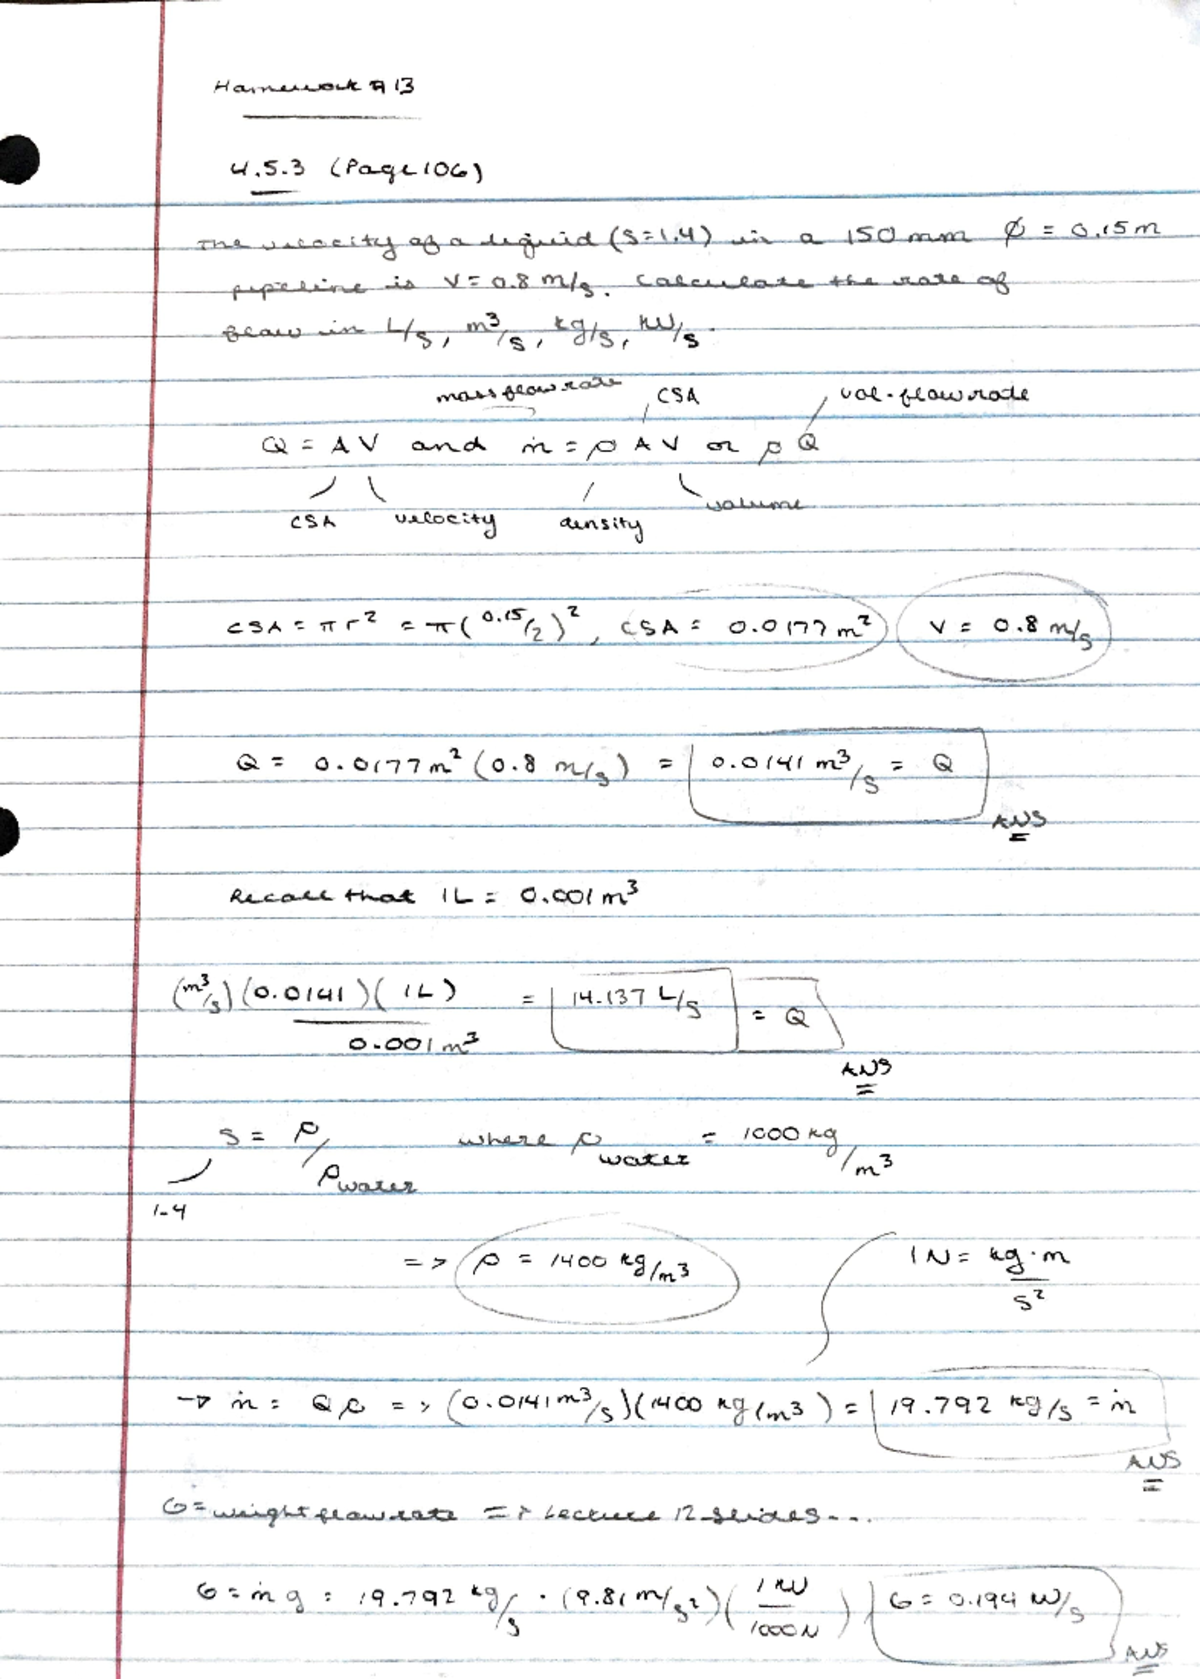 Homework # 13
4.5.3 (Page 106)
The velocity of a liquid (S=1.4) in a 150 mm Ø = 0.15m
pipeline is V= 0.8 m/s. Calculate the rate of
flow in L/s, m³/s, kg/s, kN/s.
mass flow rate CSA vol. flow rate
Q = A V and ṁ = ρ A V or ρ Q
CSA velocity density volume
CSA = π r² = π( 0.15/2 )², CSA = 0.0177 m² V = 0.8 m/s
Q = 0.0177 m² (0.8 m/s) = 0.0141 m³/s = Q
ANS
Recall that 1L = 0.001 m³
(m³/s) (0.0141)( 1L ) = 14.137 L/s = Q
0.001 m³
ANS
S = ρ/ρwater where ρwater = 1000 kg/m³
1.4
=> ρ = 1400 kg/m³ 1N = kg·m/s²
→ ṁ = Q ρ => (0.0141 m³/s)(1400 kg/m³) = 19.792 kg/s = ṁ
ANS
G = weight flow rate => Lecture 12 slides...
G = ṁ g = 19.792 kg/s · (9.81 m/s²)( 1 kN / 1000 N ) G = 0.194 kN/s
ANS